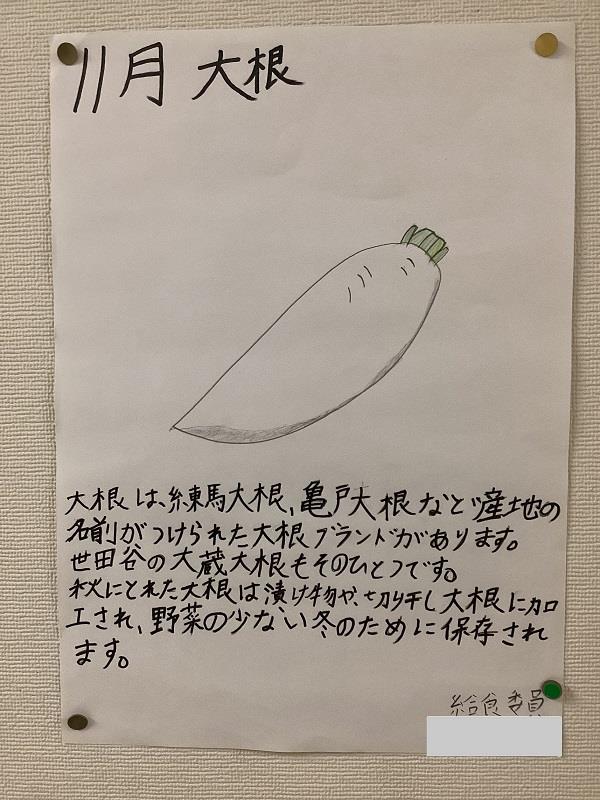 11月 大根
大根は、練馬大根、亀戸大根など産地の
名前がつけられた大根ブランドがあります。
世田谷の大蔵大根もそのひとつです。
秋にとれた大根は漬け物や、切り干し大根に加
工され、野菜の少ない冬のために保存され
ます。
給食委員